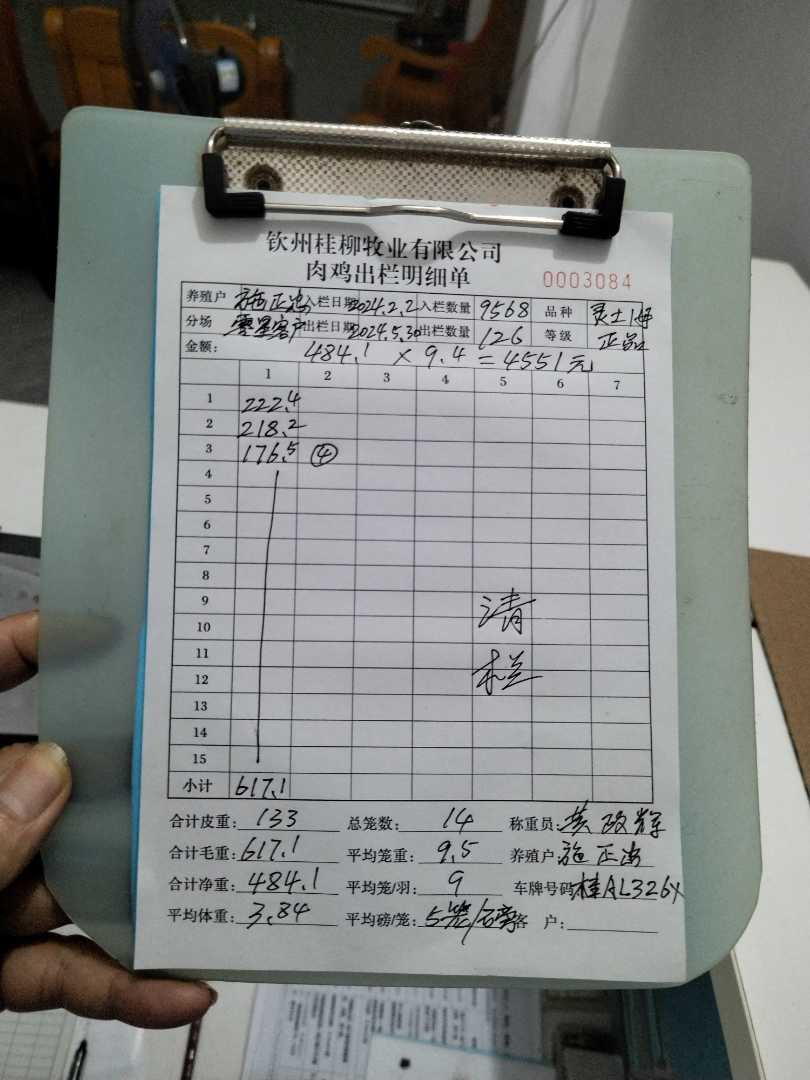 钦州桂柳牧业有限公司
肉鸡出栏明细单
0003084
养殖户 施正 入栏日期 2024.2.2 入栏数量 9568 品种
分场 零星客户 出栏日期 2024.5.30 出栏数量 126 等级 正品
金额: 484.1 × 9.4 = 4551元
1 2 3 4 5 6 7
1 222.4
2 218.2
3 176.5 ④
4
5
6
7
8
9 清
10
11
12 栏
13
14
15
小计 617.1
合计皮重: 133 总笼数: 14 称重员: 政辉
合计毛重: 617.1 平均笼重: 9.5 养殖户: 施正
合计净重: 484.1 平均笼/羽: 9 车牌号码 桂AL326X
平均体重: 3.84 平均磅/笼: 5笼/磅 客 户: